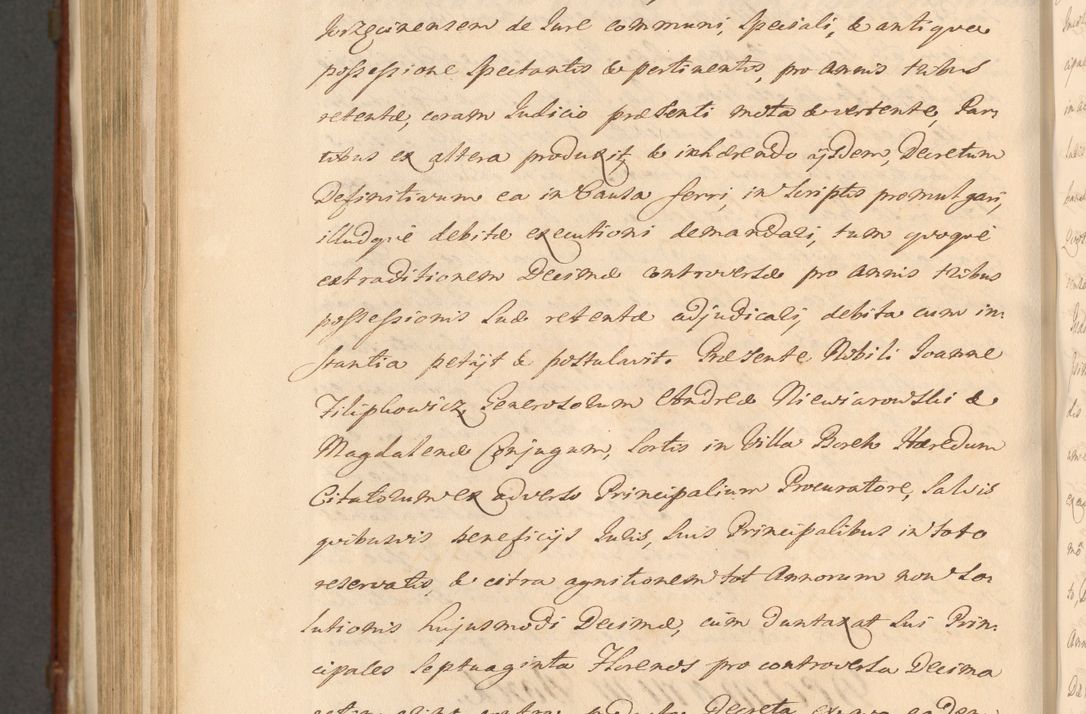 de Jure communi, speciali, & antiqua
possessione spectantis & pertinentis, pro Annis tribus
retentæ, coram Judicio præsenti mota & vertente, Par-
tibus ex altera produxit & inhærendo ijsdem, Decretum
Definitivum ea in Causa ferri, in scriptis promulgari,
illudquè debitæ executioni demandari, tum quoquè
extraditionem Decimæ controversæ pro Annis tribus
possessionis suæ retentæ adjudicari, debita cum in-
stantia petijt & postulavit. Præsente Nobili Joanne
Filipkowicz, Generosorum Andreæ Niewiarowski &
Magdalenæ Conjugum, sortis in Villa Borek Hæredum
Citatorum ex adverso Principalium Procuratore, Salvis
quibusvis beneficijs Juris, suis Principalibus in toto
reservatis, & citra agnitionem tot Annorum non so-
lutionis hujusmodi Decimæ, cùm duntaxat sui Prin-
cipales Septuaginta Florenos pro controversa Decima